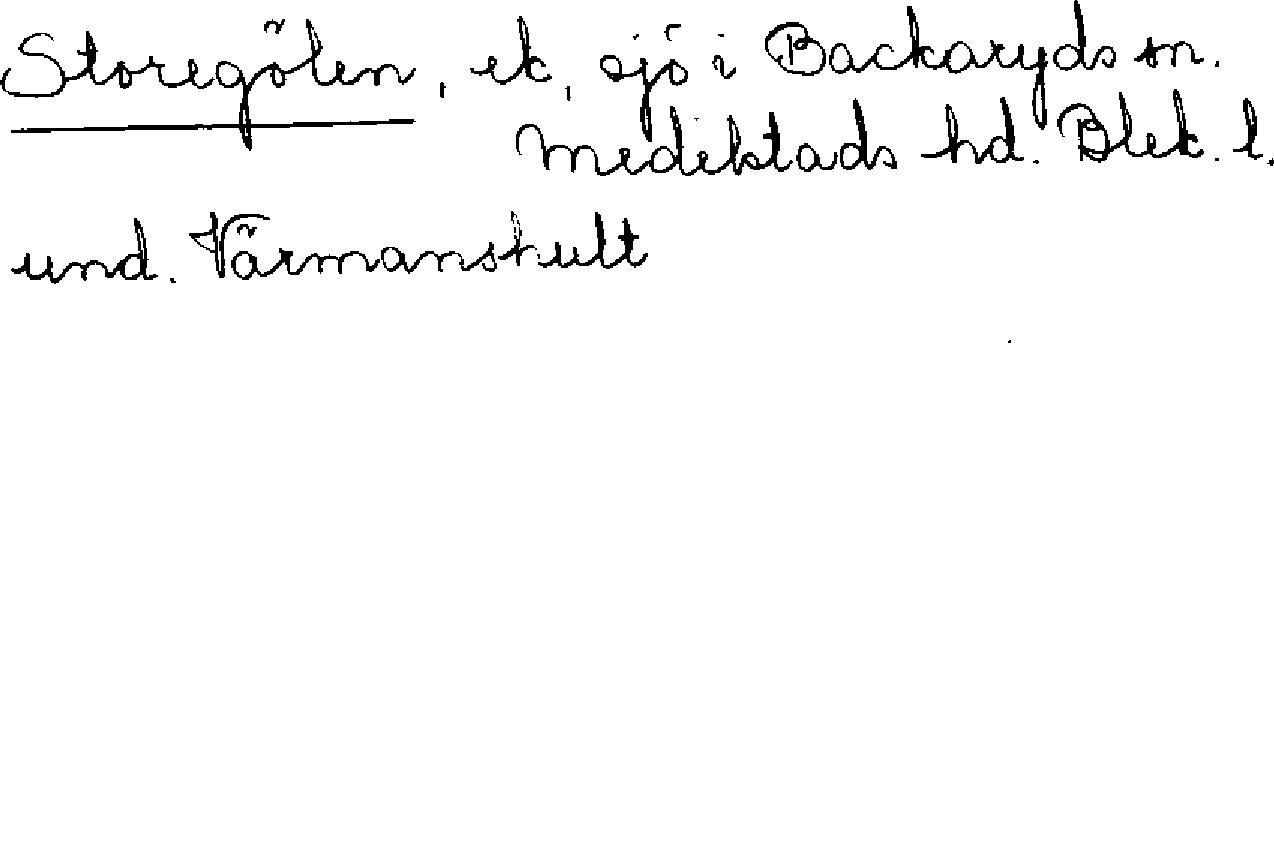 Storegölen, ek, sjö i Backaryds sn.
Medelstads hd. Blek. l.
und. Värmanshult